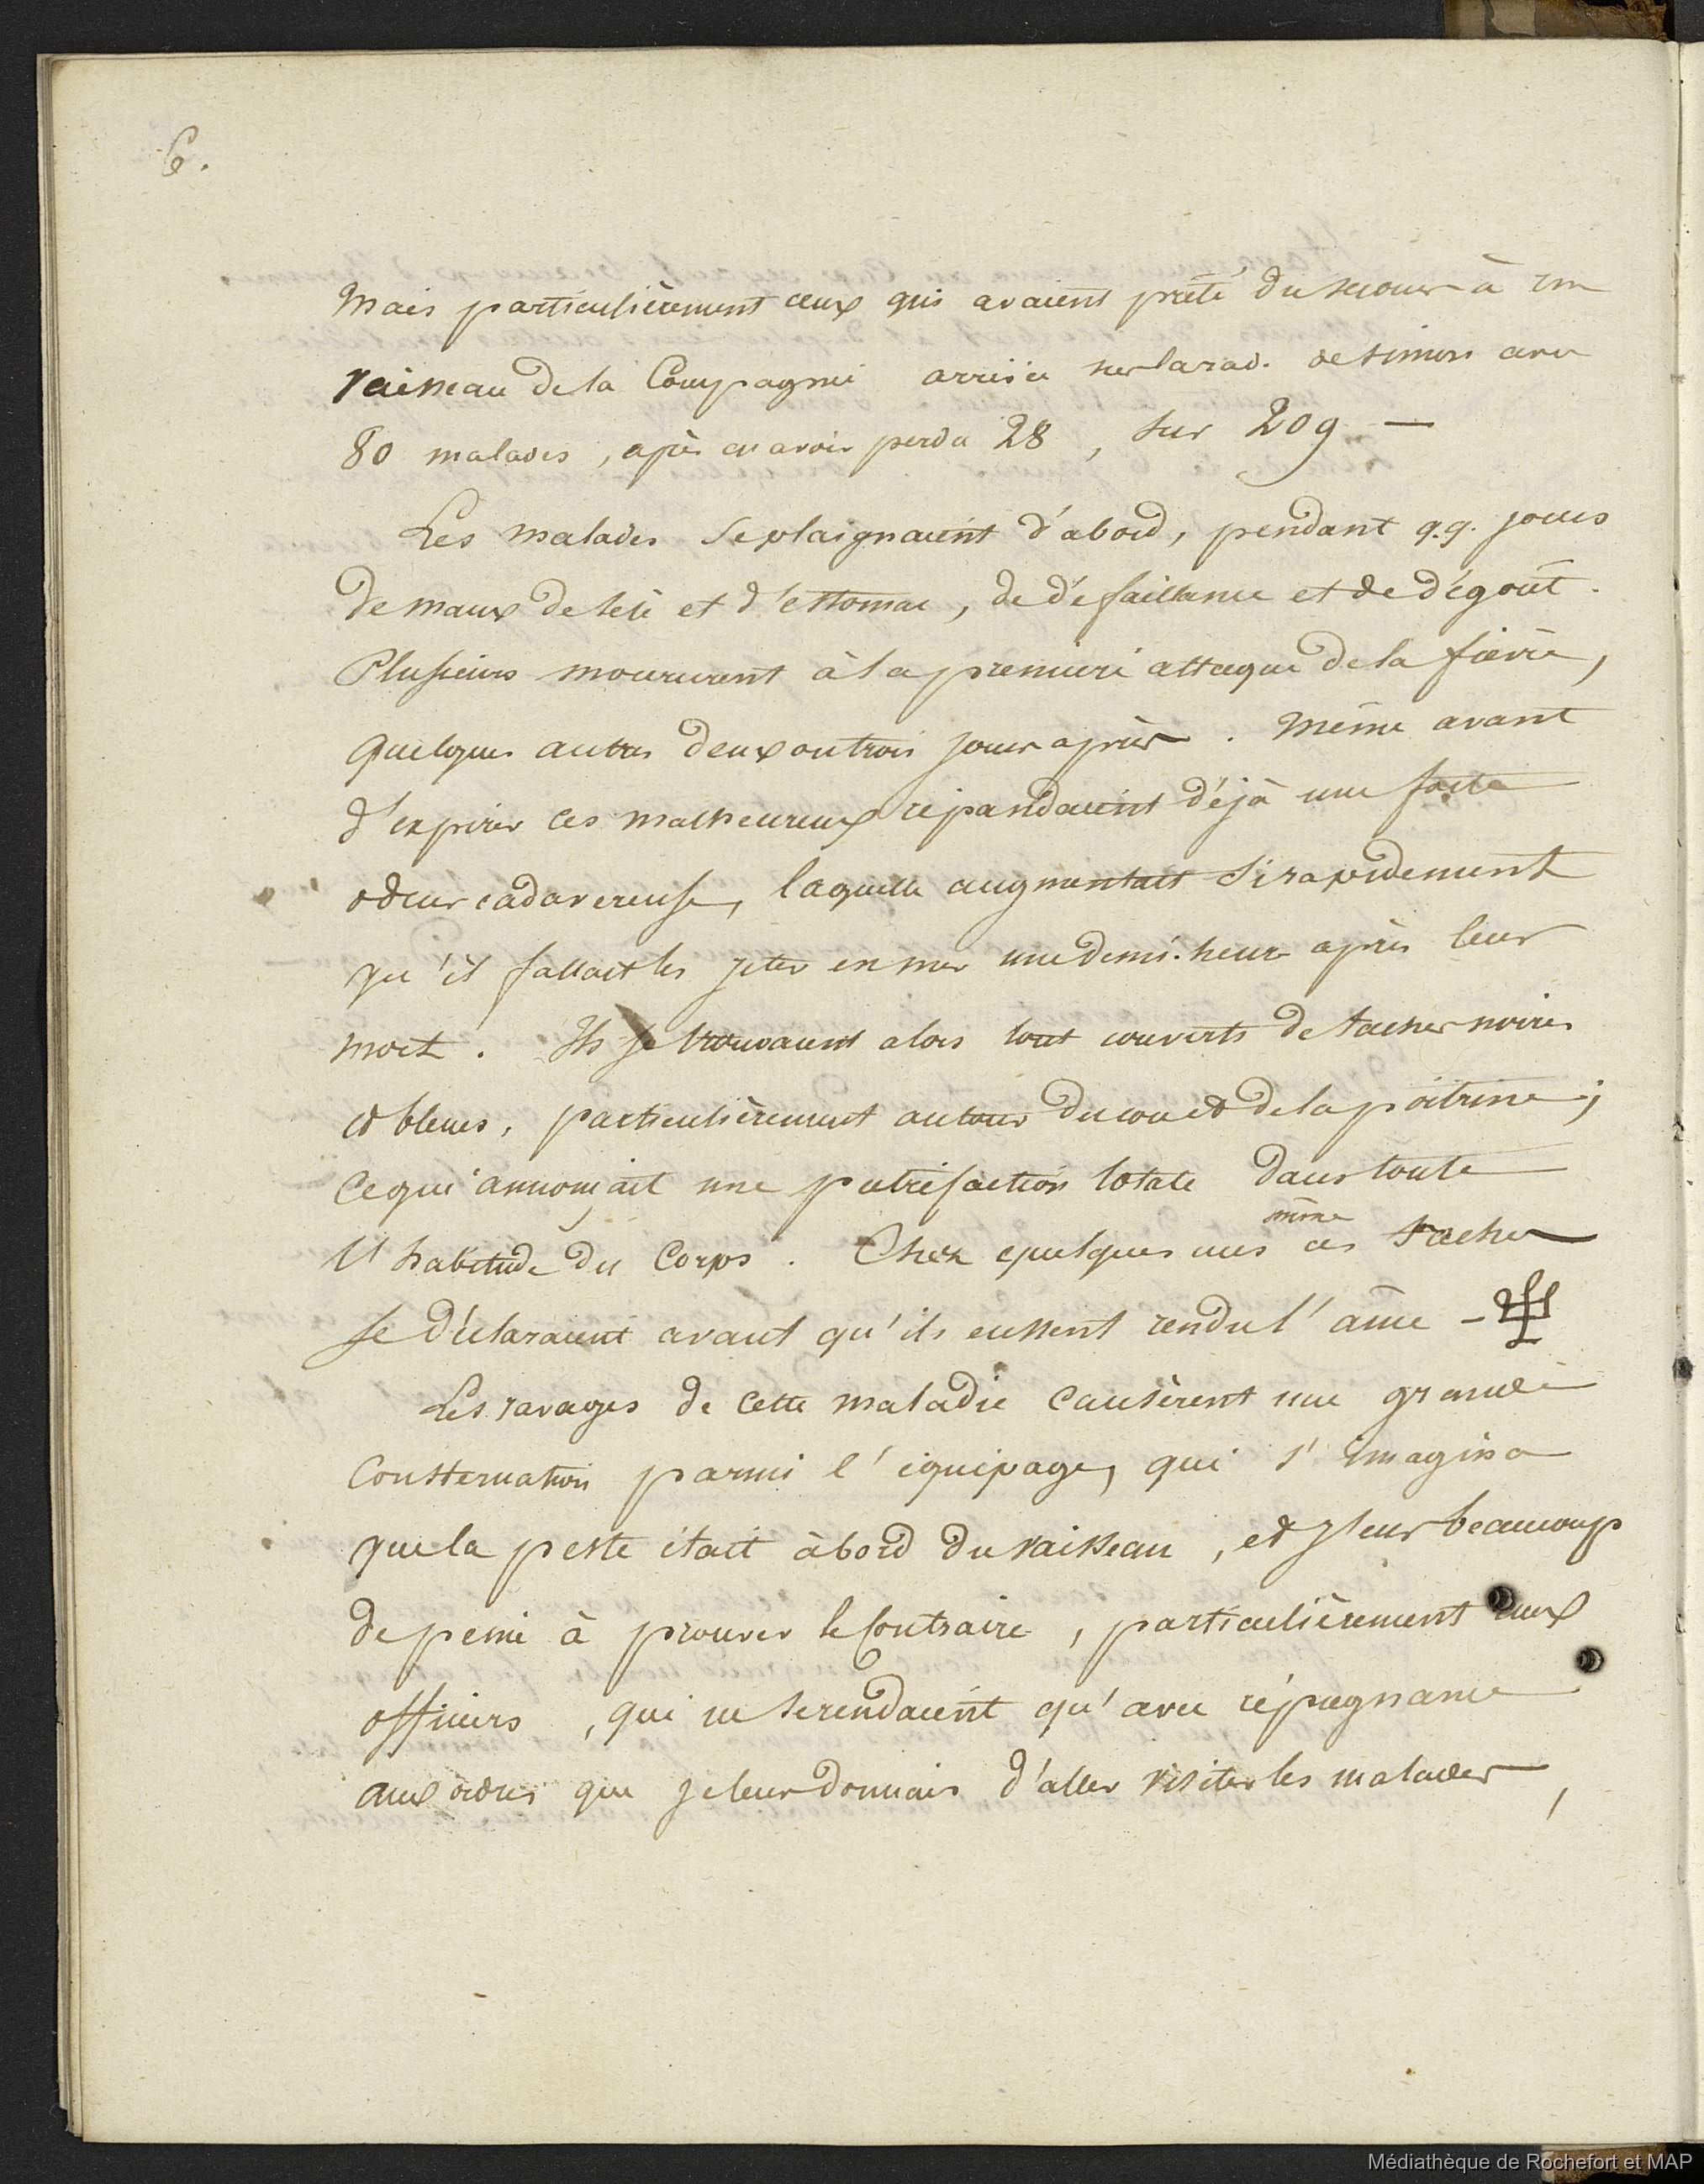 6.
mais particulièrement ceux qui avaient prêté du secours à un
vaisseau de la Compagnie arrivée sur la rad. de Simon avec
80 malades, après en avoir perdu 28, sur 209 —
Les malades se plaignaient d'abord, pendant q.q. jours
de maux de tête et d'estomac, de défaillance et de dégoût.
Plusieurs moururent à la première attaque de la fièvre,
quelques autres deux ou trois jours après. Même avant
d'expirer ces malheureux répandaient déjà une forte
odeur cadavereuse, laquelle augmentait si rapidement
qu'il fallait les jeter en mer une demi-heure après leur
mort. Ils se trouvaient alors tout couverts de taches noires
et bleues, particulièrement autour du cou et de la poitrine;
ce qui annonçait une putréfaction totale dans toute
l'habitude du Corps. Chez quelques uns ces même taches
se déclaraient avant qu'ils eussent rendu l'âme —
Les ravages de cette maladie causèrent une grande
consternation parmi l'équipage, qui s'imagina
que la peste était à bord du vaisseau, et j'eus beaucoup
de peine à prouver le contraire, particulièrement aux
officiers, qui ne se rendaient qu'avec répugnance
aux ordres que je leur donnais d'aller visiter les malades,
Médiathèque de Rochefort et MAP